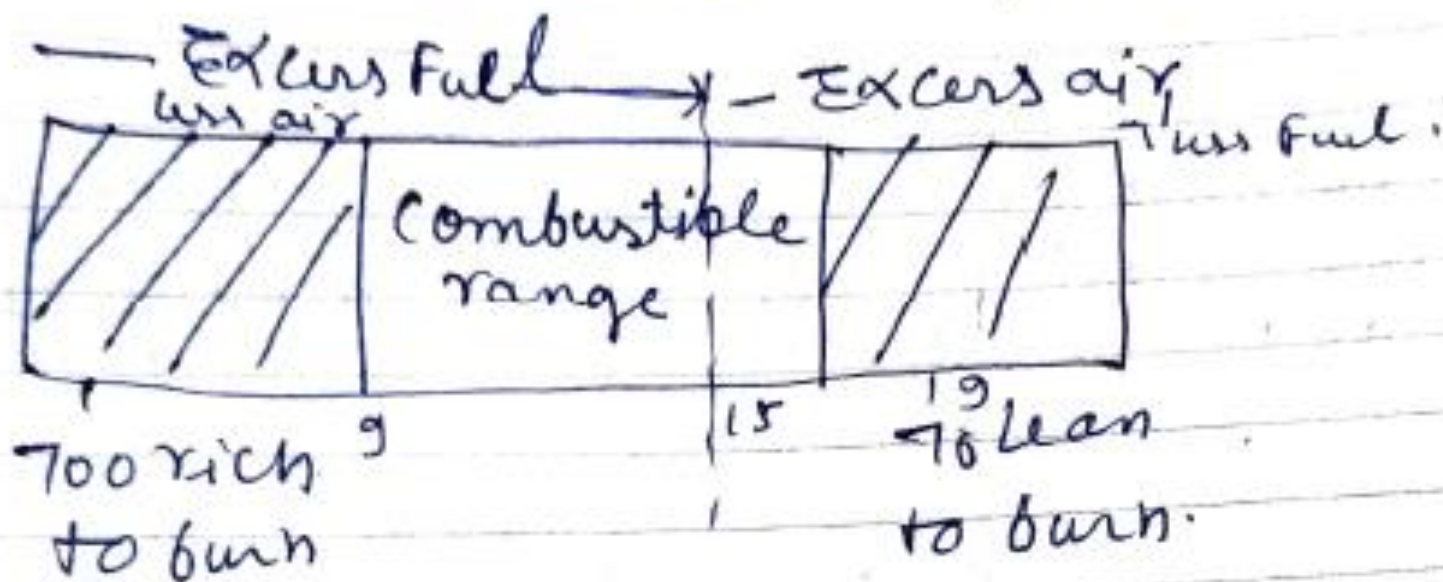 Excess Fuel - Excess air,
less air less Fuel.
Combustible
range
9 15 19
Too rich Too Lean
to burn to burn.